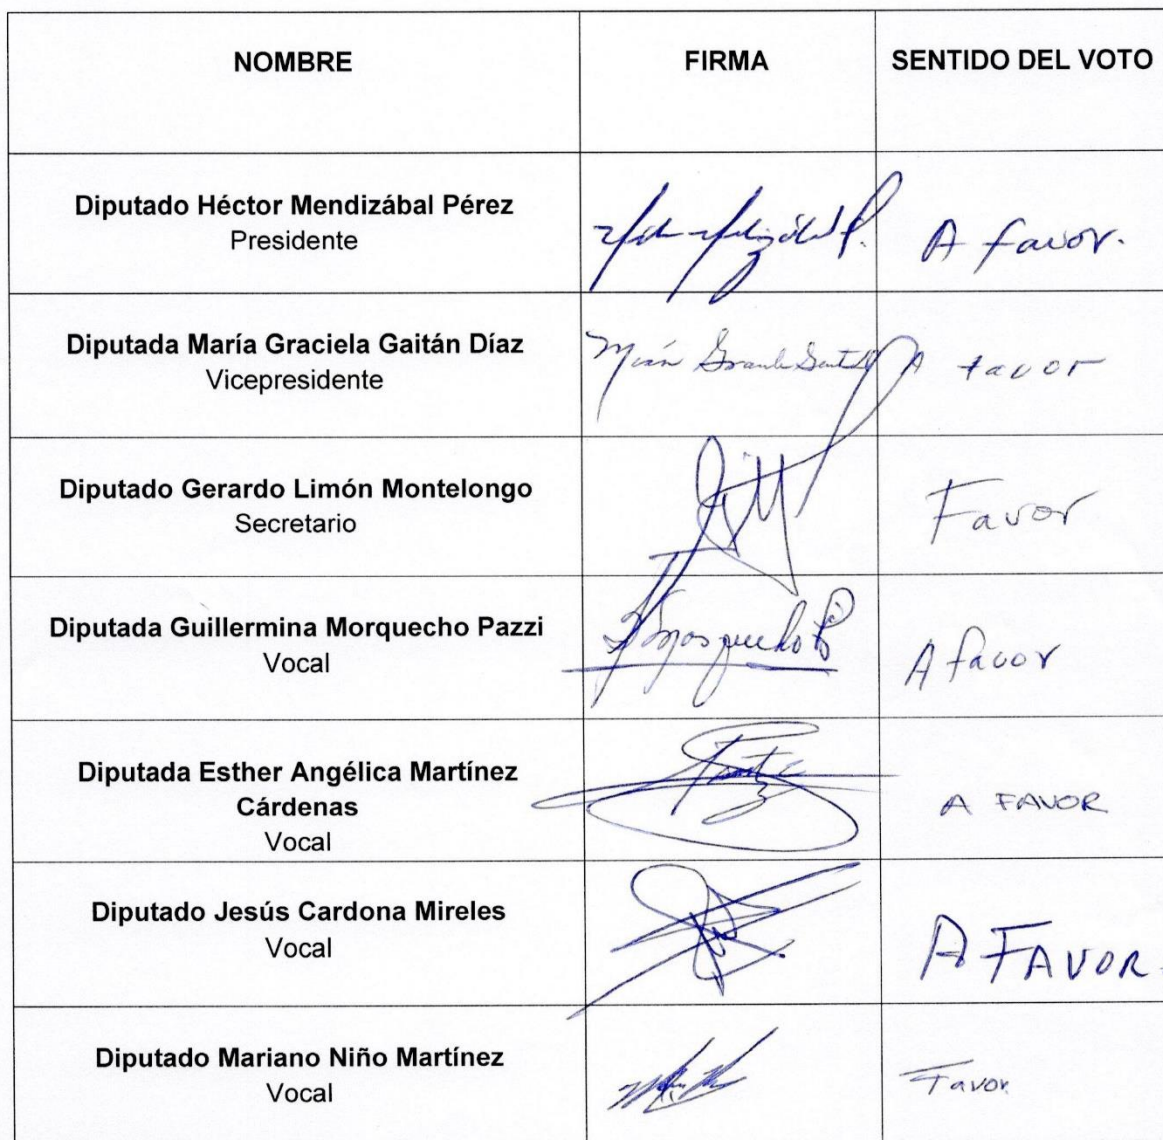 NOMBRE FIRMA SENTIDO DEL VOTO
Diputado Héctor Mendizábal Pérez
Presidente
A favor.
Diputada María Graciela Gaitán Díaz
Vicepresidente
A favor
Diputado Gerardo Limón Montelongo
Secretario
Favor
Diputada Guillermina Morquecho Pazzi
Vocal
Morquecho P
A favor
Diputada Esther Angélica Martínez
Cárdenas
Vocal
A FAVOR
Diputado Jesús Cardona Mireles
Vocal
A FAVOR.
Diputado Mariano Niño Martínez
Vocal
Favor